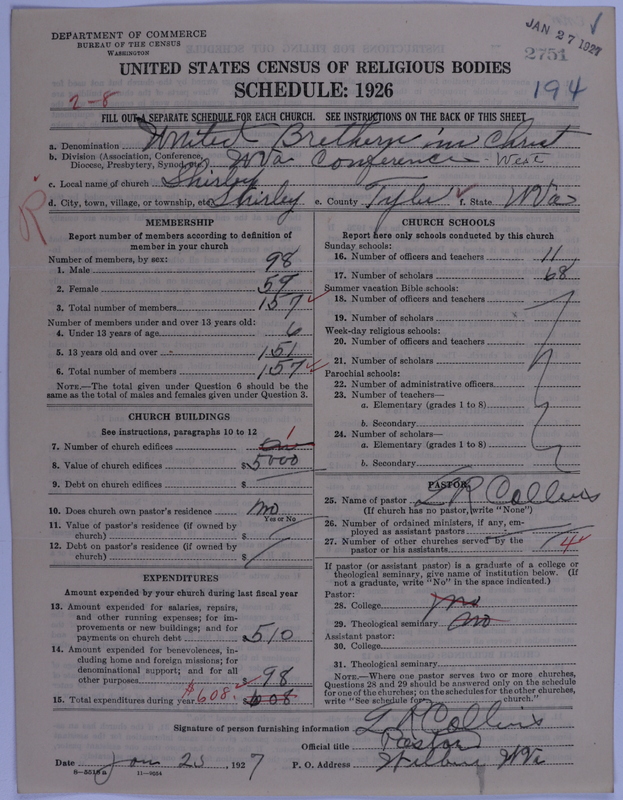 DEPARTMENT OF COMMERCE
BUREAU OF THE CENSUS
WASHINGTON
JAN 27 1927
2751
UNITED STATES CENSUS OF RELIGIOUS BODIES
SCHEDULE: 1926
194
2-8
FILL OUT A SEPARATE SCHEDULE FOR EACH CHURCH. SEE INSTRUCTIONS ON THE BACK OF THIS SHEET
a. Denomination United Brethern in Christ
b. Division (Association, Conference, Diocese, Presbytery, Synod, etc.) W Va Conference - West
c. Local name of church Shirley
d. City, town, village, or township, etc. Shirley e. County Tyler f. State W Va
R
MEMBERSHIP
Report number of members according to definition of member in your church
Number of members, by sex:
1. Male 98
2. Female 59
3. Total number of members 157
Number of members under and over 13 years old:
4. Under 13 years of age 6
5. 13 years old and over 151
6. Total number of members 157
NOTE.—The total given under Question 6 should be the same as the total of males and females given under Question 3.
CHURCH BUILDINGS
See instructions, paragraphs 10 to 12
7. Number of church edifices 1
8. Value of church edifices $5000
9. Debt on church edifices $
10. Does church own pastor's residence no
Yes or No
11. Value of pastor's residence (if owned by church) $
12. Debt on pastor's residence (if owned by church) $
EXPENDITURES
Amount expended by your church during last fiscal year
13. Amount expended for salaries, repairs, and other running expenses; for improvements or new buildings; and for payments on church debt $510
14. Amount expended for benevolences, including home and foreign missions; for denominational support; and for all other purposes $98
15. Total expenditures during year $608. 608
CHURCH SCHOOLS
Report here only schools conducted by this church
Sunday schools:
16. Number of officers and teachers 11
17. Number of scholars 68
Summer vacation Bible schools:
18. Number of officers and teachers
19. Number of scholars
Week-day religious schools:
20. Number of officers and teachers
21. Number of scholars
Parochial schools:
22. Number of administrative officers
23. Number of teachers—
a. Elementary (grades 1 to 8)
b. Secondary
24. Number of scholars—
a. Elementary (grades 1 to 8)
b. Secondary
PASTOR
25. Name of pastor E R Collins
(If church has no pastor, write "None")
26. Number of ordained ministers, if any, employed as assistant pastors
27. Number of other churches served by the pastor or his assistants 4
If pastor (or assistant pastor) is a graduate of a college or theological seminary, give name of institution below. (If not a graduate, write "No" in the space indicated.)
Pastor:
28. College no
29. Theological seminary no
Assistant pastor:
30. College
31. Theological seminary
NOTE.—Where one pastor serves two or more churches, Questions 28 and 29 should be answered only on the schedule for one of the churches; on the schedules for the other churches, write "See schedule for church."
Signature of person furnishing information E R Collins
Official title Pastor
Date Jan 25, 1927 P. O. Address Wilbur W Va
8—5518a 11—9054